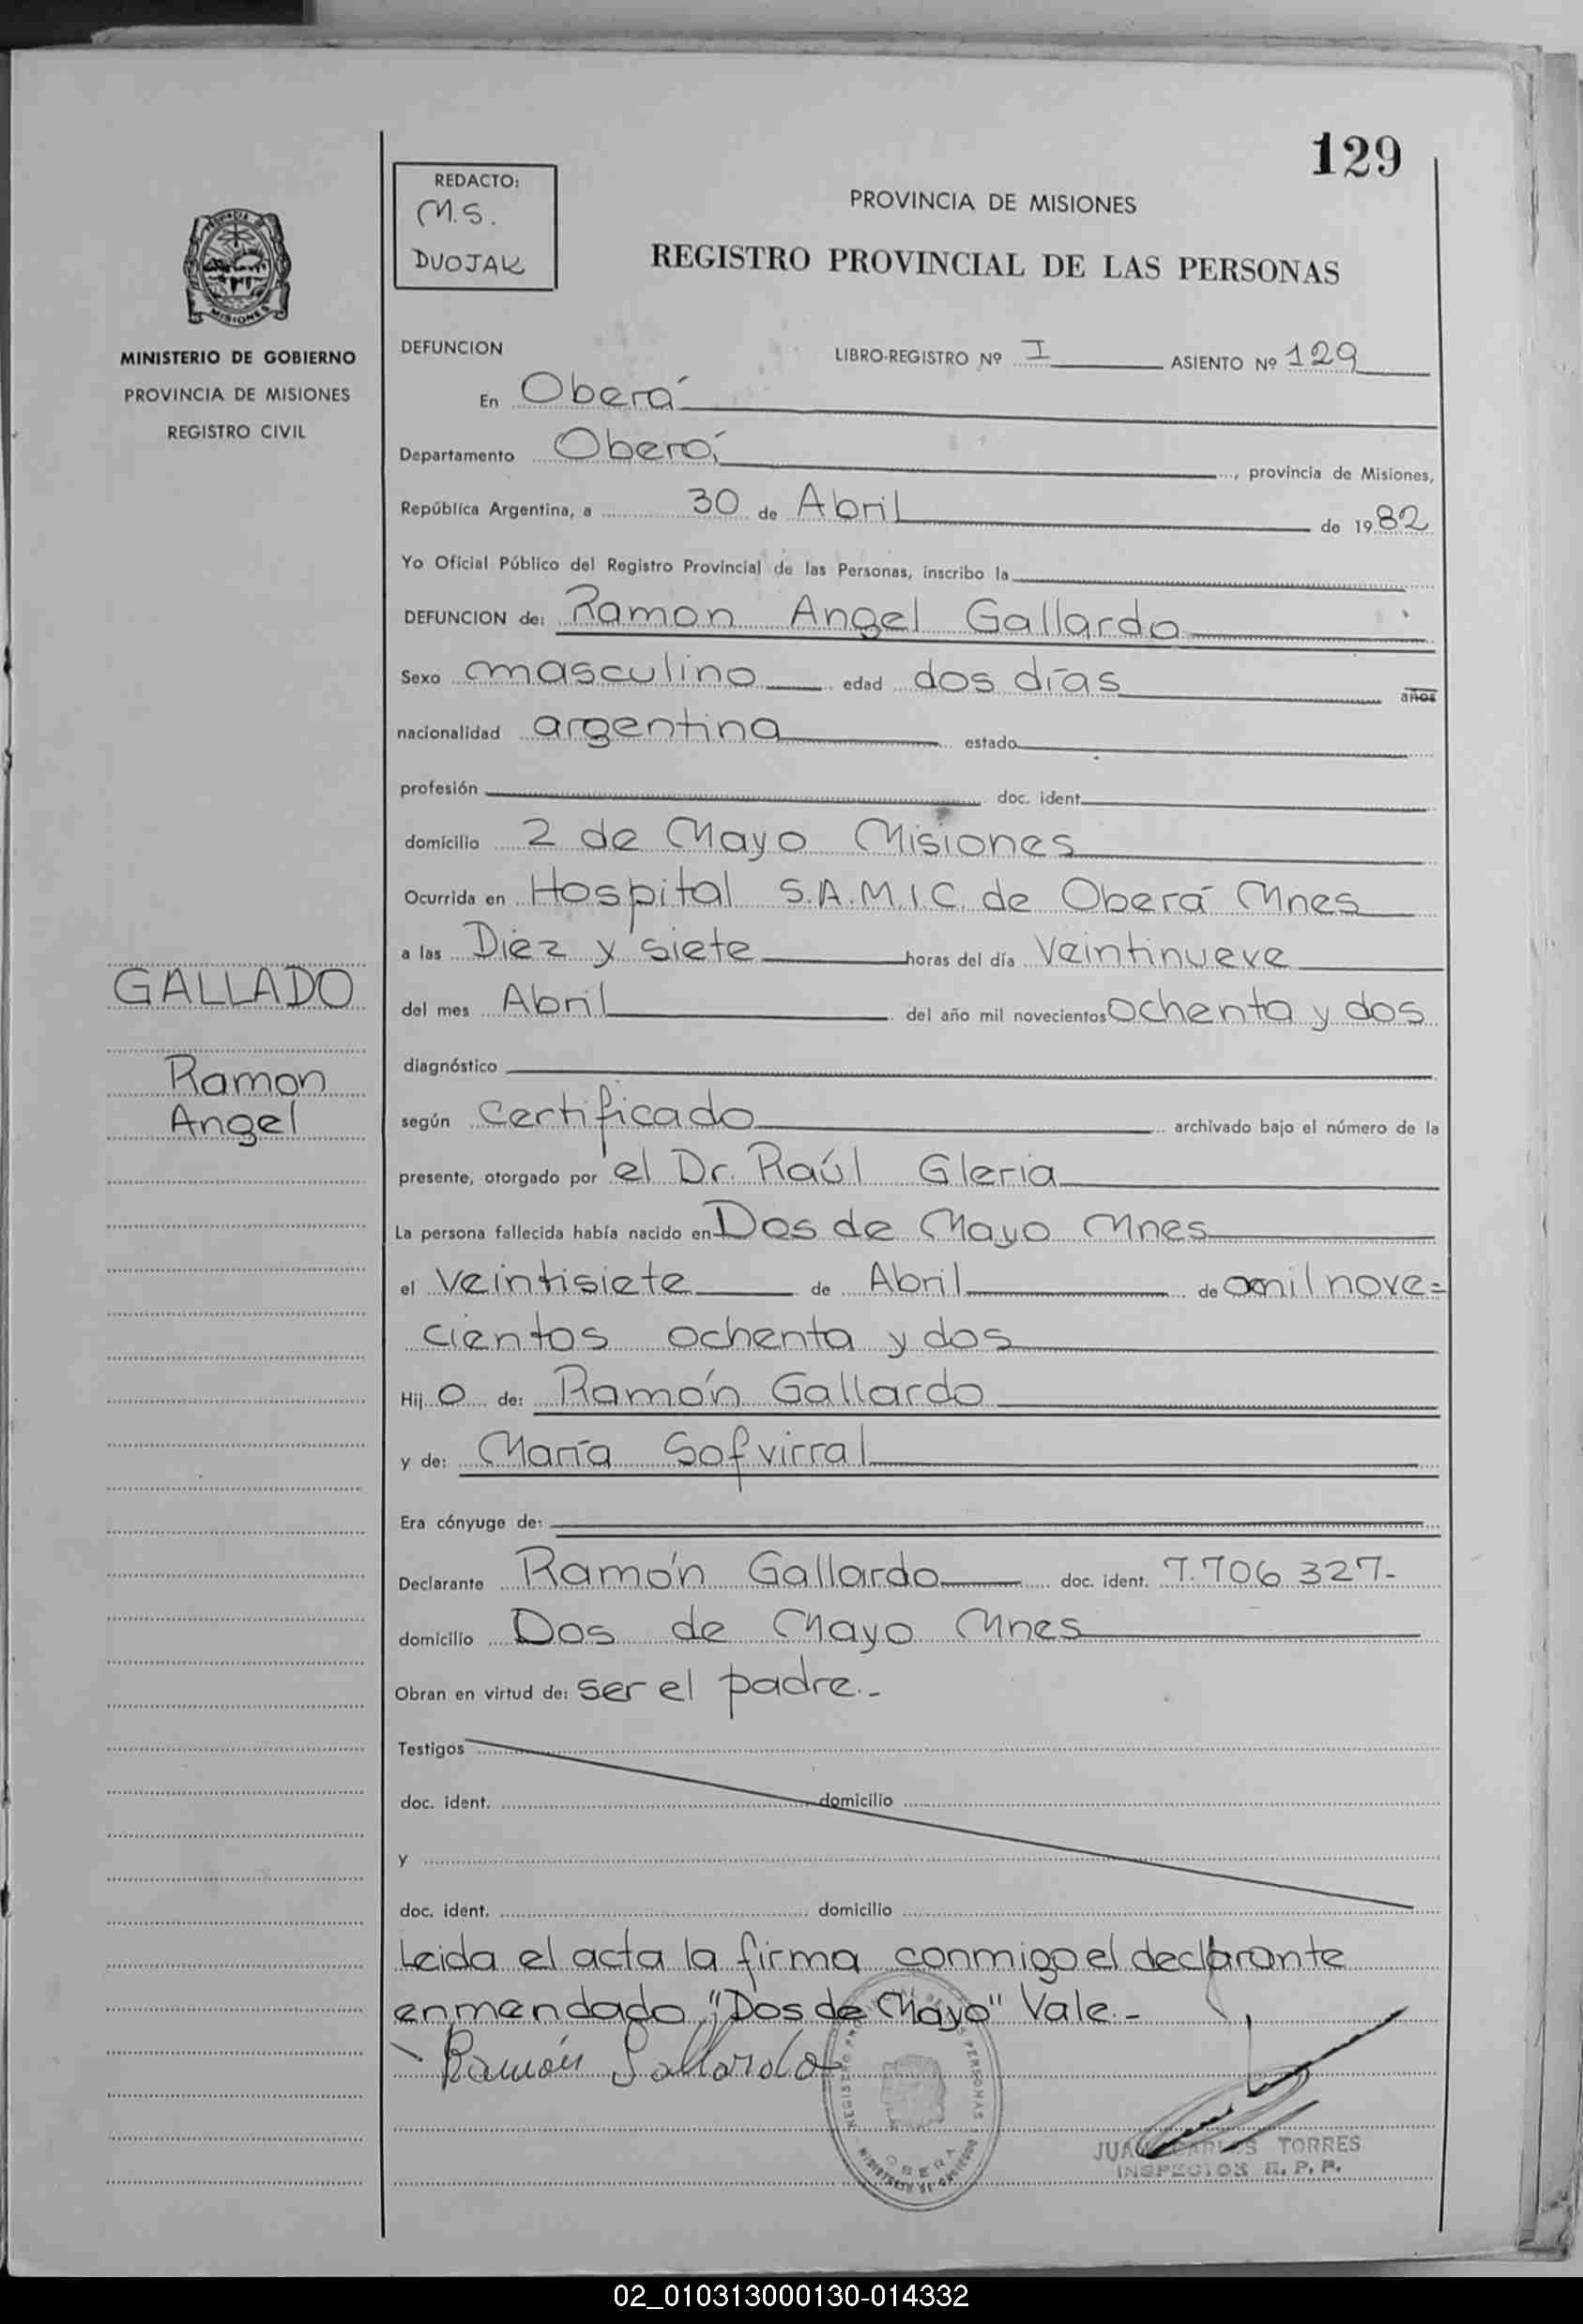 129
REDACTO:
M.S.
DUOJAK
PROVINCIA DE MISIONES
REGISTRO PROVINCIAL DE LAS PERSONAS
MISIONES
MINISTERIO DE GOBIERNO
PROVINCIA DE MISIONES
REGISTRO CIVIL
DEFUNCION LIBRO-REGISTRO Nº I ASIENTO Nº 129
En Oberá
Departamento Oberá, provincia de Misiones,
República Argentina, a 30 de Abril de 1982
Yo Oficial Público del Registro Provincial de las Personas, inscribo la
DEFUNCION de: Ramon Angel Gallardo
Sexo masculino edad dos días años
nacionalidad argentina estado
profesión doc. ident.
domicilio 2 de Mayo Misiones
Ocurrida en Hospital S.A.M.I.C. de Oberá Mnes
a las Diez y siete horas del día Veintinueve
del mes Abril del año mil novecientos Ochenta y dos
GALLADO
Ramon
Angel
diagnóstico
según certificado archivado bajo el número de la
presente, otorgado por el Dr. Raúl Gleria
La persona fallecida había nacido en Dos de Mayo Mnes
el Veintisiete de Abril de mil nove=
cientos ochenta y dos
Hijo de: Ramón Gallardo
y de: María Sofvirral
Era cónyuge de:
Declarante Ramón Gallardo doc. ident. 7.706 327-
domicilio Dos de Mayo Mnes
Obran en virtud de: ser el padre.-
Testigos
doc. ident. domicilio
y
doc. ident. domicilio
Leida el acta la firma conmigo el declarante
enmendado "Dos de Mayo" Vale.-
Ramón Gallardo
OBERA
JUAN CARLOS TORRES
INSPECTOR R. P. P.
02_010313000130-014332